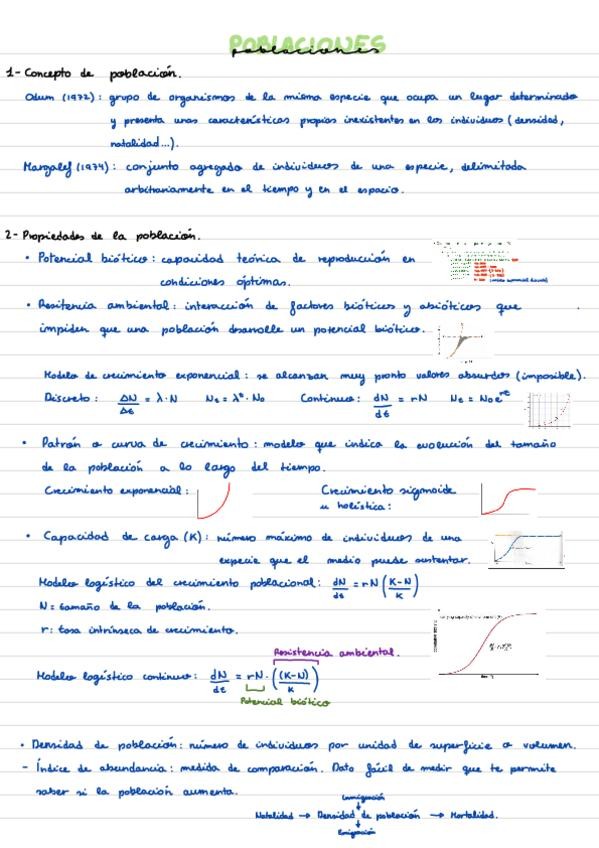 POBLACIONES
poblaciones
1- Concepto de población.
Odum (1972): grupo de organismos de la misma especie que ocupa un lugar determinado
y presenta unas características propias inexistentes en los individuos (densidad,
natalidad...).
Margalef (1974): conjunto agregado de individuos de una especie, delimitada
arbitrariamente en el tiempo y en el espacio.
2- Propiedades de la población.
• Potencial biótico: capacidad teórica de reproducción en
condiciones óptimas.
• Resitencia ambiental: interacción de factores bióticos y abióticos que
impiden que una población desarrolle un potencial biótico.
Modelo de crecimiento exponencial: se alcanzan muy pronto valores absurdos (imposible).
Discreto: ΔN/Δt = λ·N Nt = λᵗ·N₀ Continuo: dN/dt = rN Nt = N₀e^rt
• Patrón o curva de crecimiento: modelo que indica la evolución del tamaño
de la población a lo largo del tiempo.
Crecimiento exponencial: Crecimiento sigmoide
u holística:
• Capacidad de carga (K): número máximo de individuos de una
especie que el medio puede sustentar.
Modelo logístico del crecimiento poblacional: dN/dt = rN (K-N/K)
N = tamaño de la población.
r: tasa intrínseca de crecimiento.
Resistencia ambiental.
Modelo logístico continuo: dN/dt = rN · ((K-N)/K)
Potencial biótico
• Densidad de población: número de individuos por unidad de superficie o volumen.
- Índice de abundancia: medida de comparación. Dato fácil de medir que te permite
saber si la población aumenta.
Inmigración
↓
Natalidad → Densidad de población → Mortalidad.
↓
Emigración